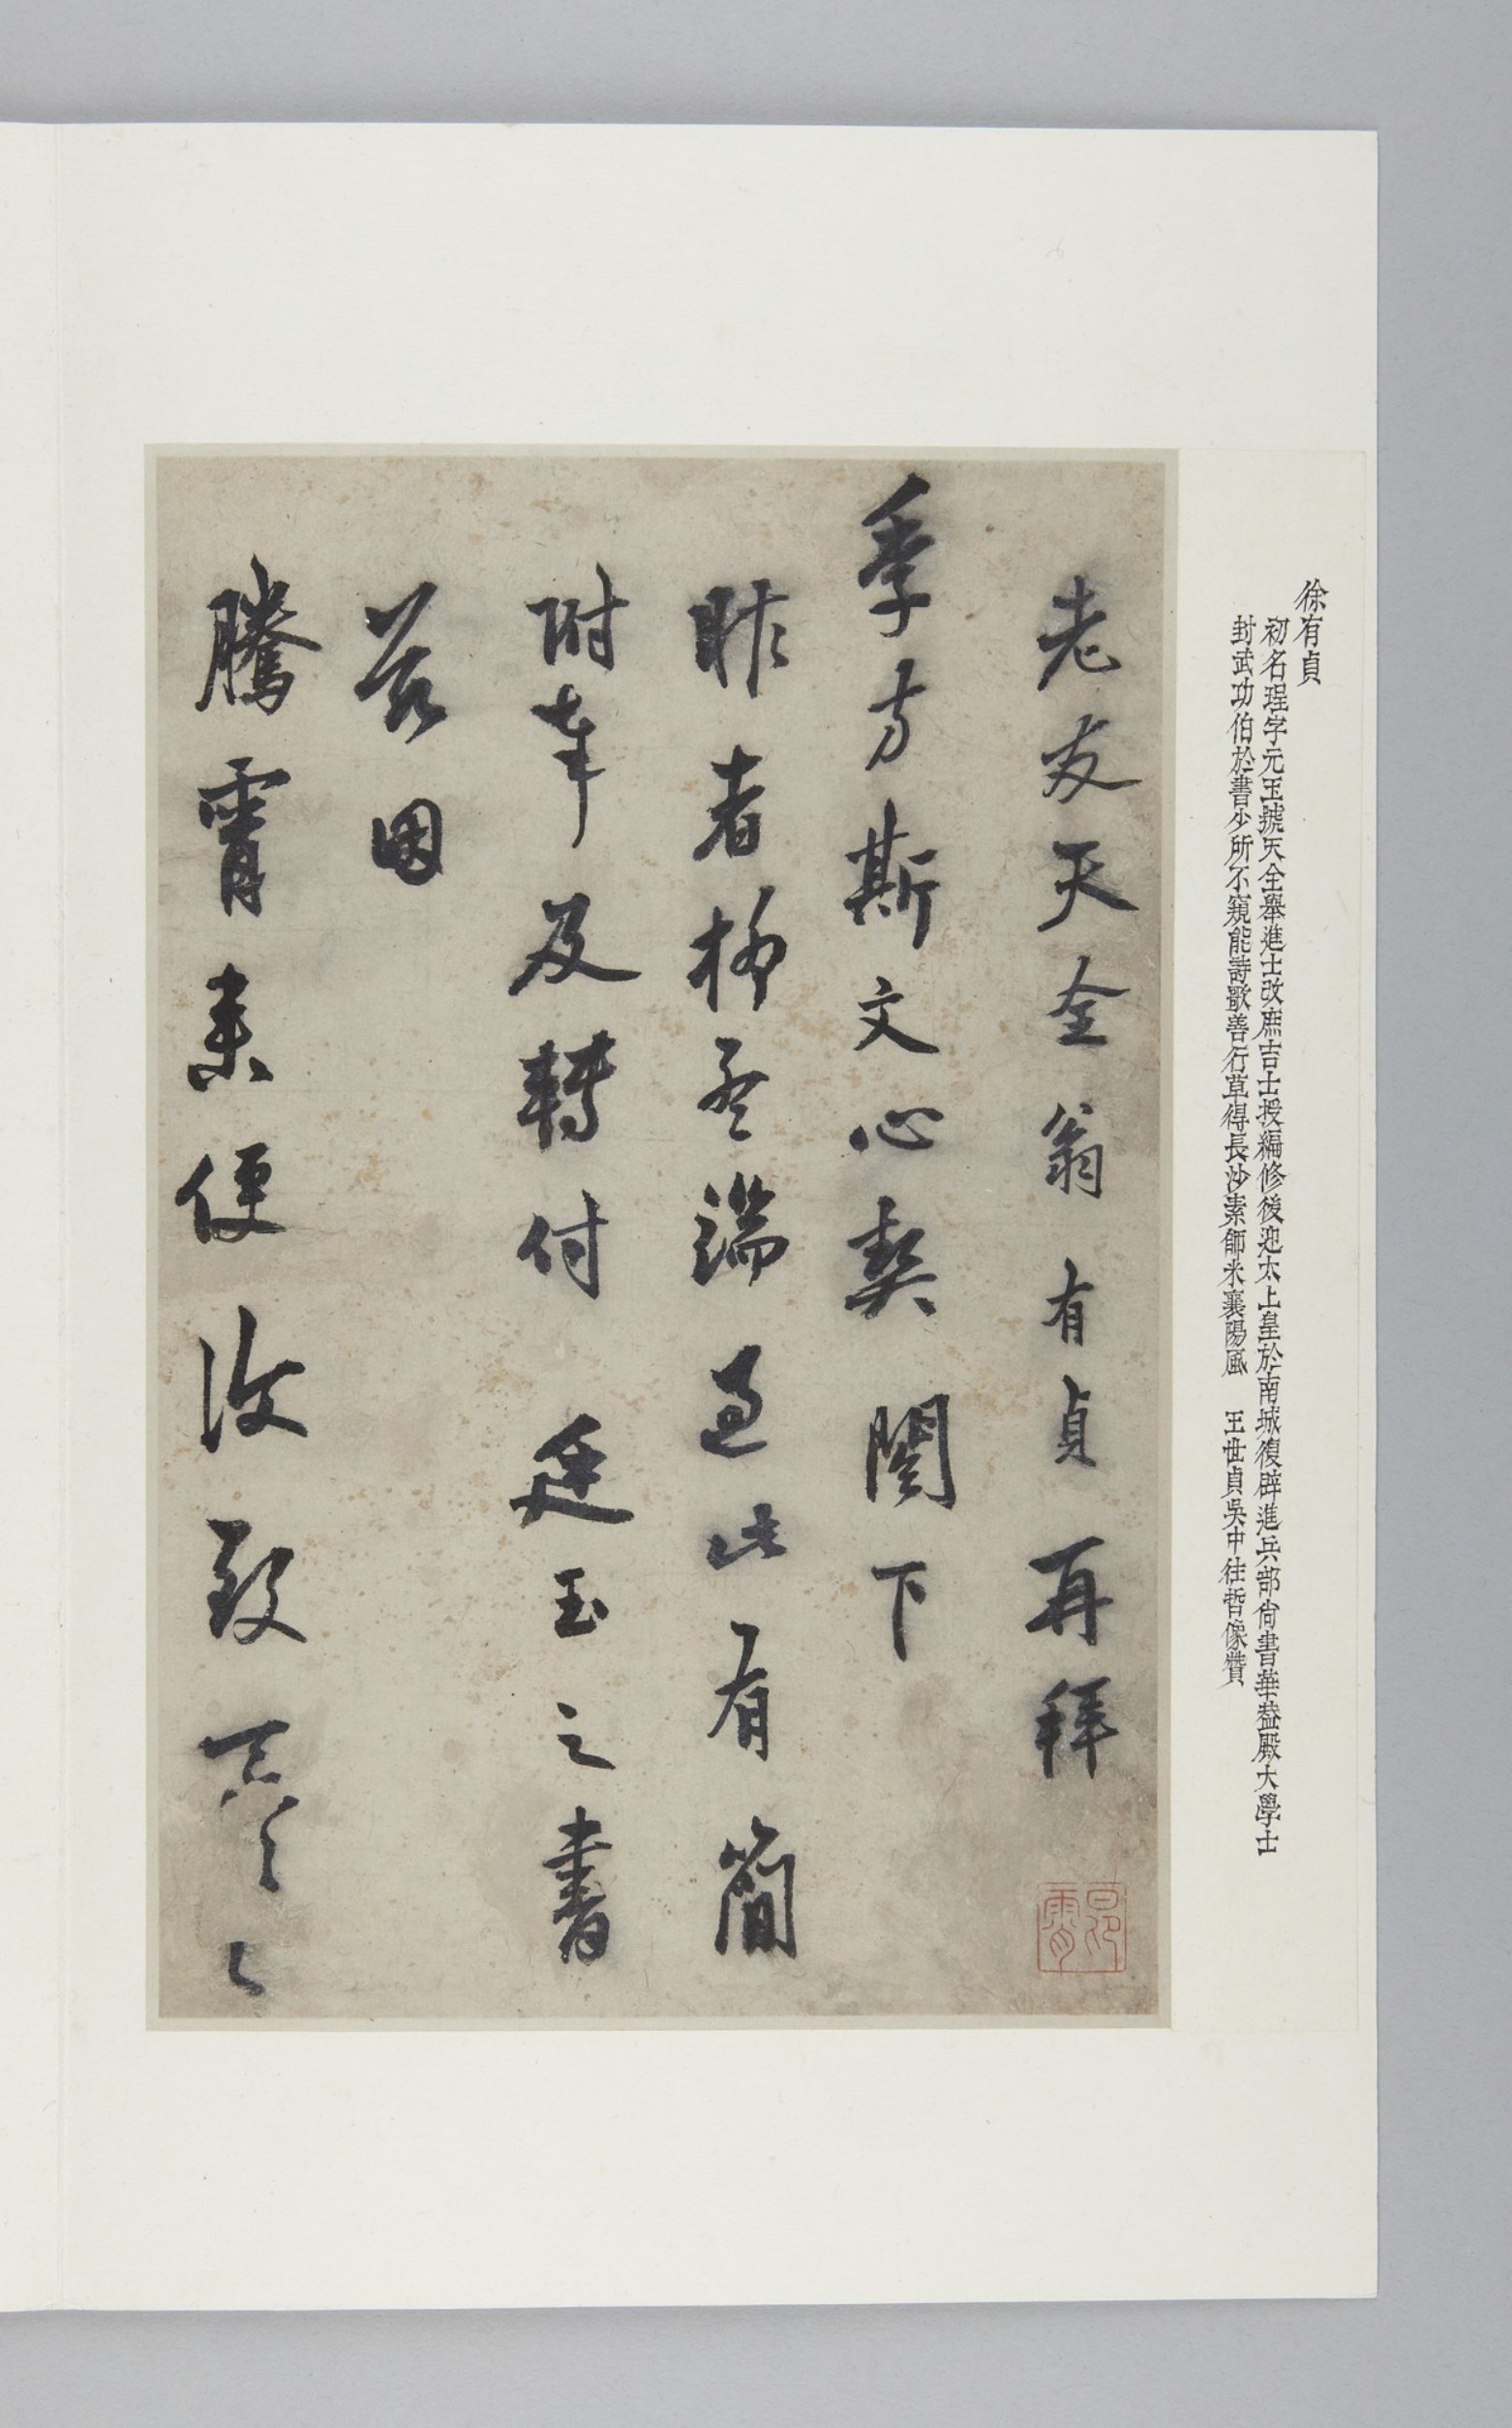 徐有貞
初名珵字元玉號天全舉進士改庶吉士授編修後迎太上皇於南城復辟進兵部尚書華蓋殿大學士
封武功伯於書少所不窺能詩歌善行草得長沙素師米襄陽風 王世貞吳中往哲像贊
老友天全翁有貞再拜
季方斯文心契閣下
昨者端過此有簡
附奉及轉付廷玉之書
因
騰霄来便致